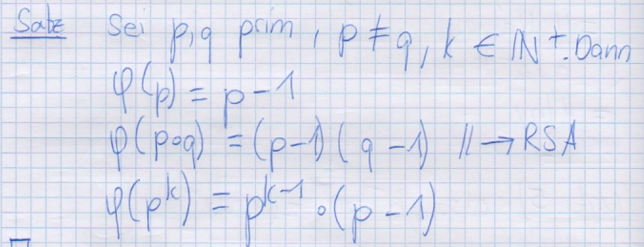 Satz Sei p,q prim, p ≠ q, k ∈ ℕ⁺. Dann
φ(p) = p - 1
φ(p∘q) = (p-1)(q-1) // → RSA
φ(pᵏ) = pᵏ⁻¹∘(p-1)